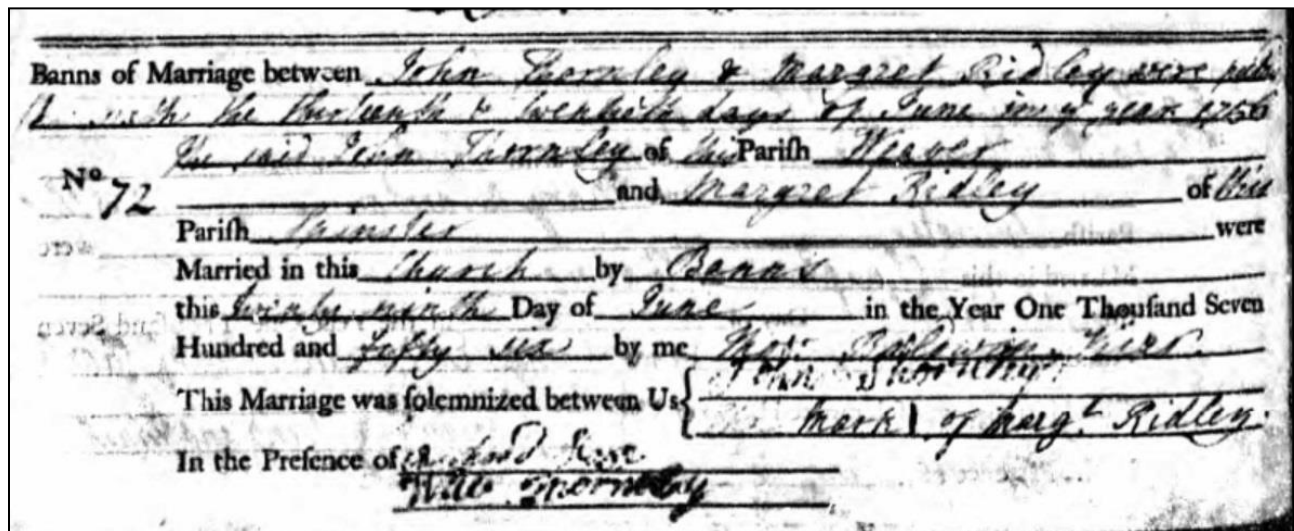 Banns of Marriage between John Thornley & Margret Ridley were
the thirteenth & twentieth days of June in yͤ year 1756
The said John Thornley of this Parish Weaver
No 72 and Margret Ridley of this
Parish Spinster were
Married in this Church by Banns
this twenty ninth Day of June in the Year One Thousand Seven
Hundred and fifty six by me Thos. Baldwin Vicar.
This Marriage was solemnized between Us John Thornley
mark of Margt. Ridley.
In the Presence of
Thornley